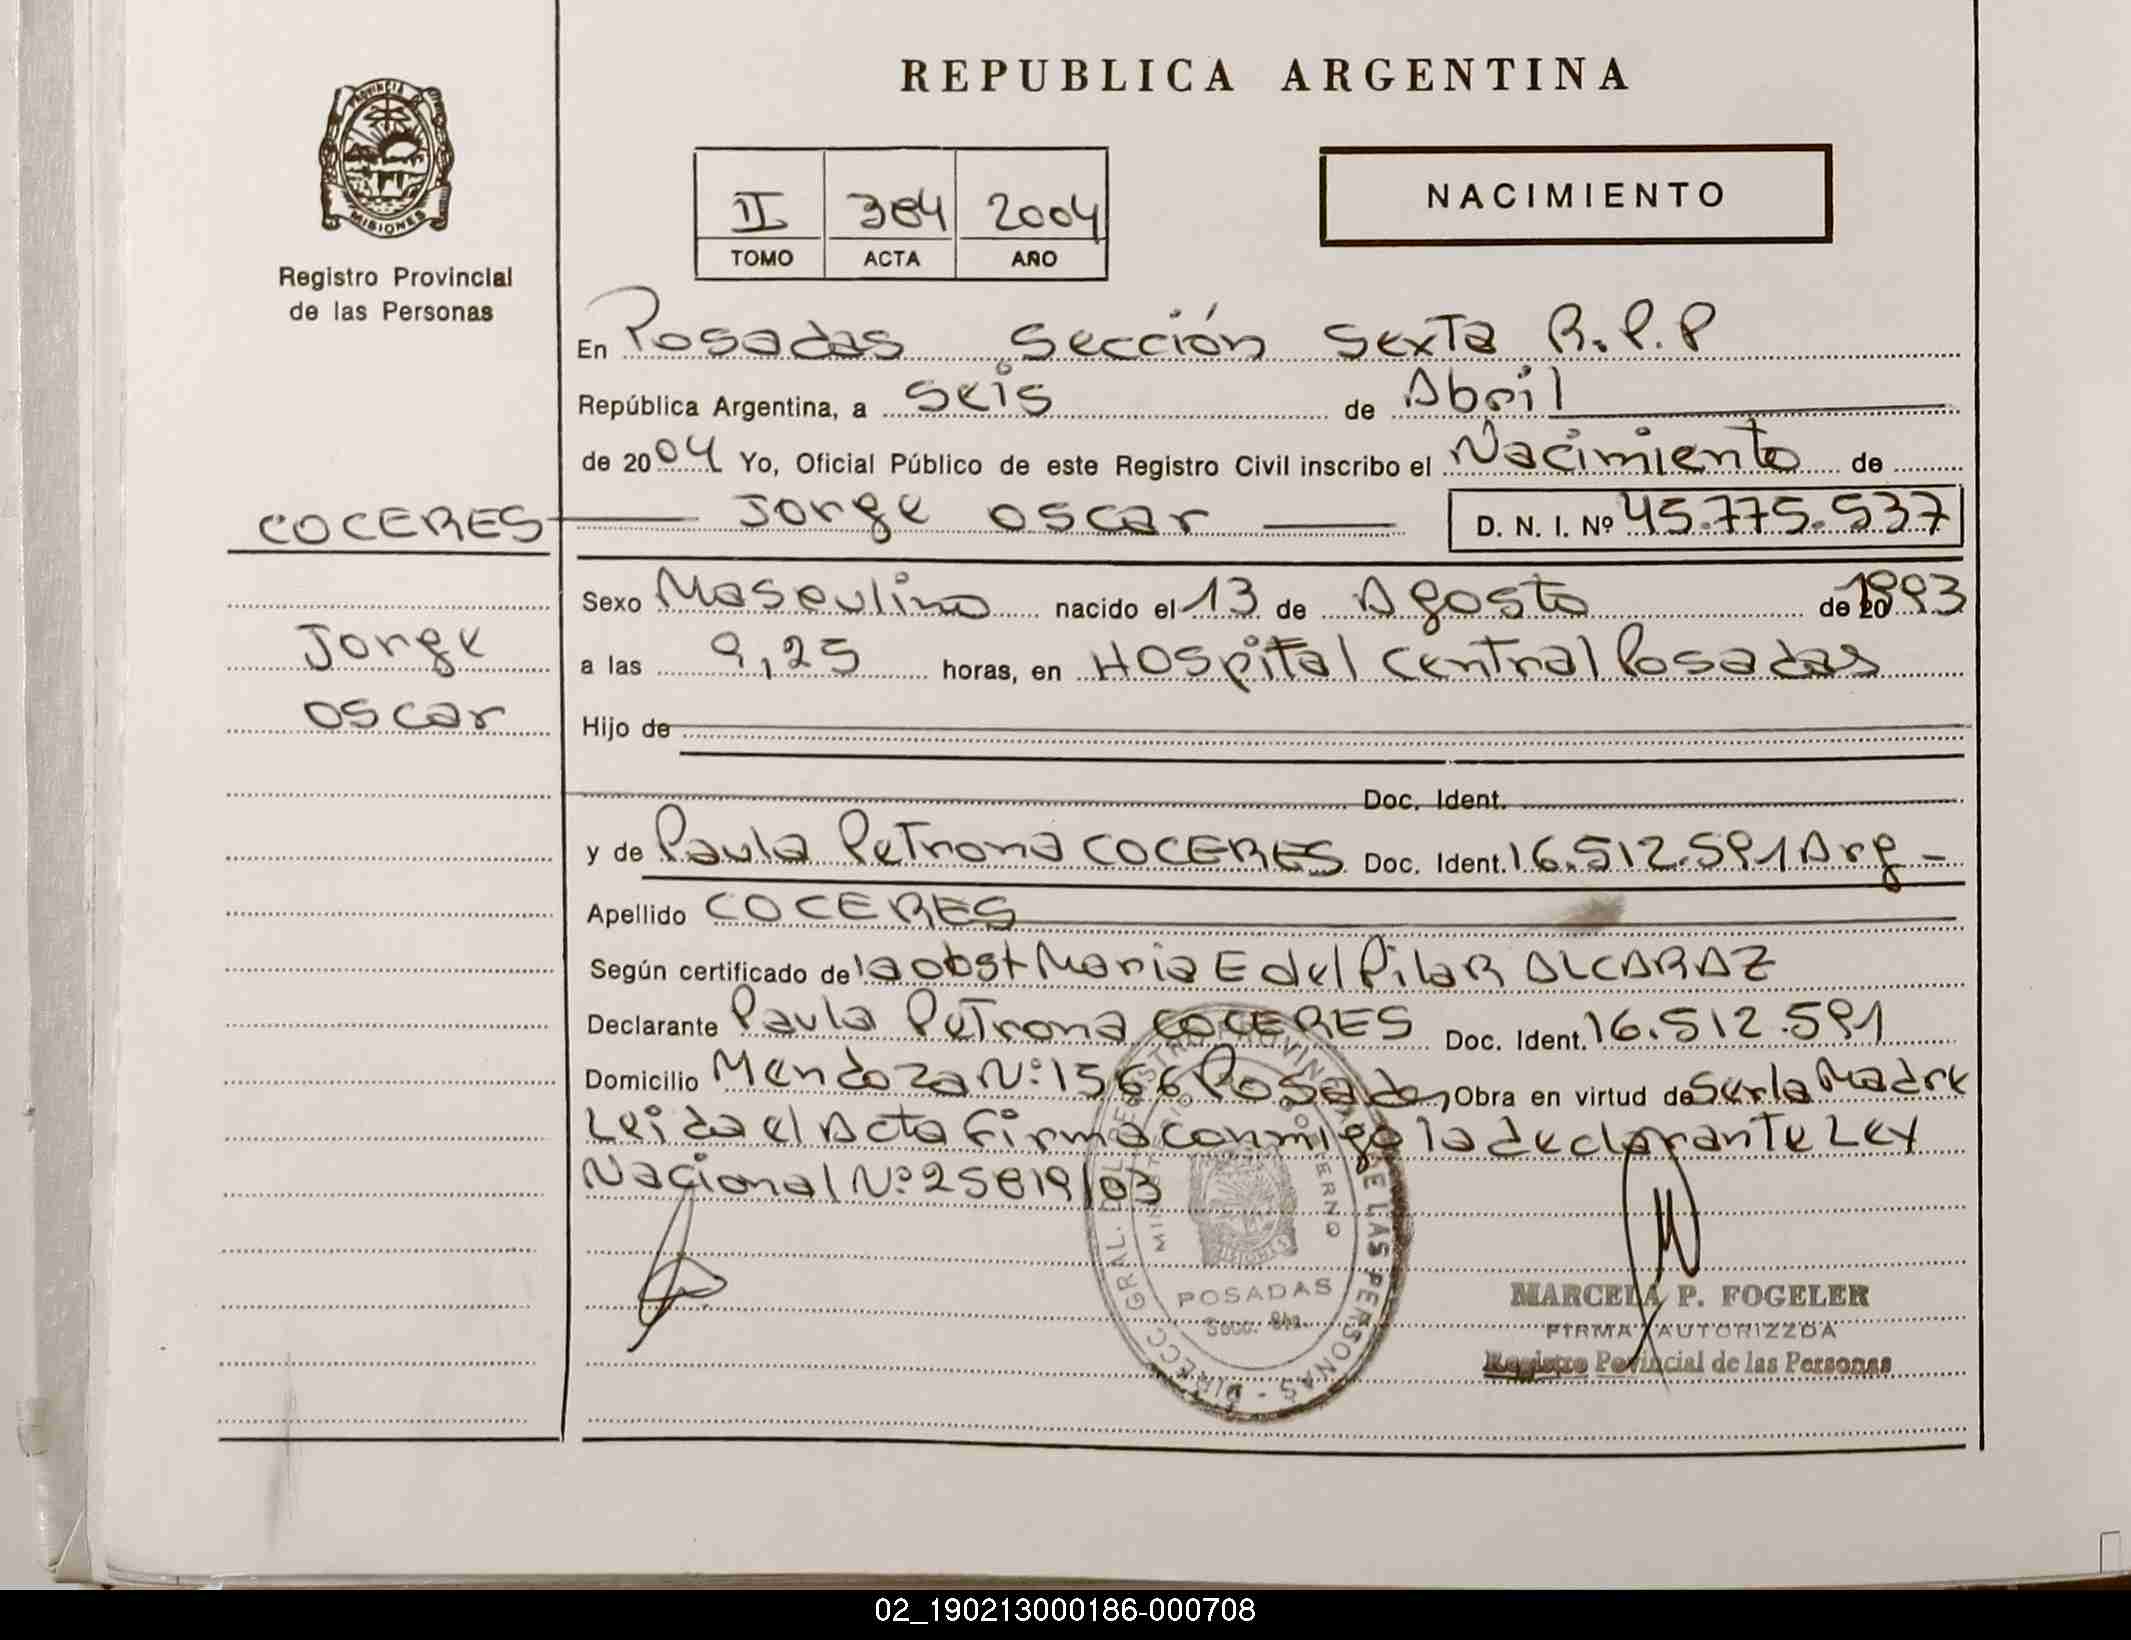 REPUBLICA ARGENTINA
PROVINCIA DE
MISIONES
Registro Provincial
de las Personas
II 384 2004
TOMO ACTA AÑO
NACIMIENTO
En Posadas Sección Sexta R.P.P
República Argentina, a Seis de Abril
de 2004 Yo, Oficial Público de este Registro Civil inscribo el Nacimiento de
COCERES Jorge Oscar D. N. I. Nº 45.775.537
Sexo Masculino nacido el 13 de Agosto de 1993
Jorge
a las 9,25 horas, en Hospital Central Posadas
Oscar
Hijo de
Doc. Ident.
y de Paula Petrona COCERES Doc. Ident. 16.512.591 Arg -
Apellido COCERES
Según certificado de la obst Maria E del Pilar ALCARAZ
Declarante Paula Petrona COCERES Doc. Ident. 16.512.591
Domicilio Mendoza Nº 1566 Posadas, Obra en virtud de Ser la Madre
Leida el Acta firma conmigo la declarante Ley
Nacional Nº 25819/03
DIRECC. GRAL. DEL REGISTRO PROVINCIAL DE LAS PERSONAS -
MINISTERIO GOBIERNO
POSADAS
Secc. 6ta.
MARCELA P. FOGELER
FIRMA AUTORIZZDA
Registro Povincial de las Personas
02_190213000186-000708